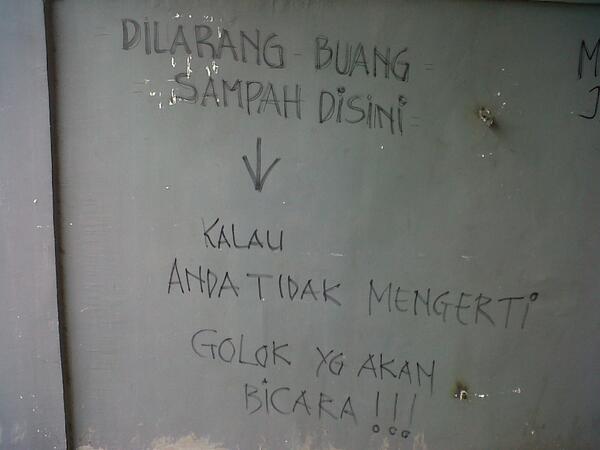 DILARANG - BUANG =
= SAMPAH DISINI =
↓
KALAU
ANDA TIDAK MENGERTI
GOLOK YG AKAN
BICARA !!!